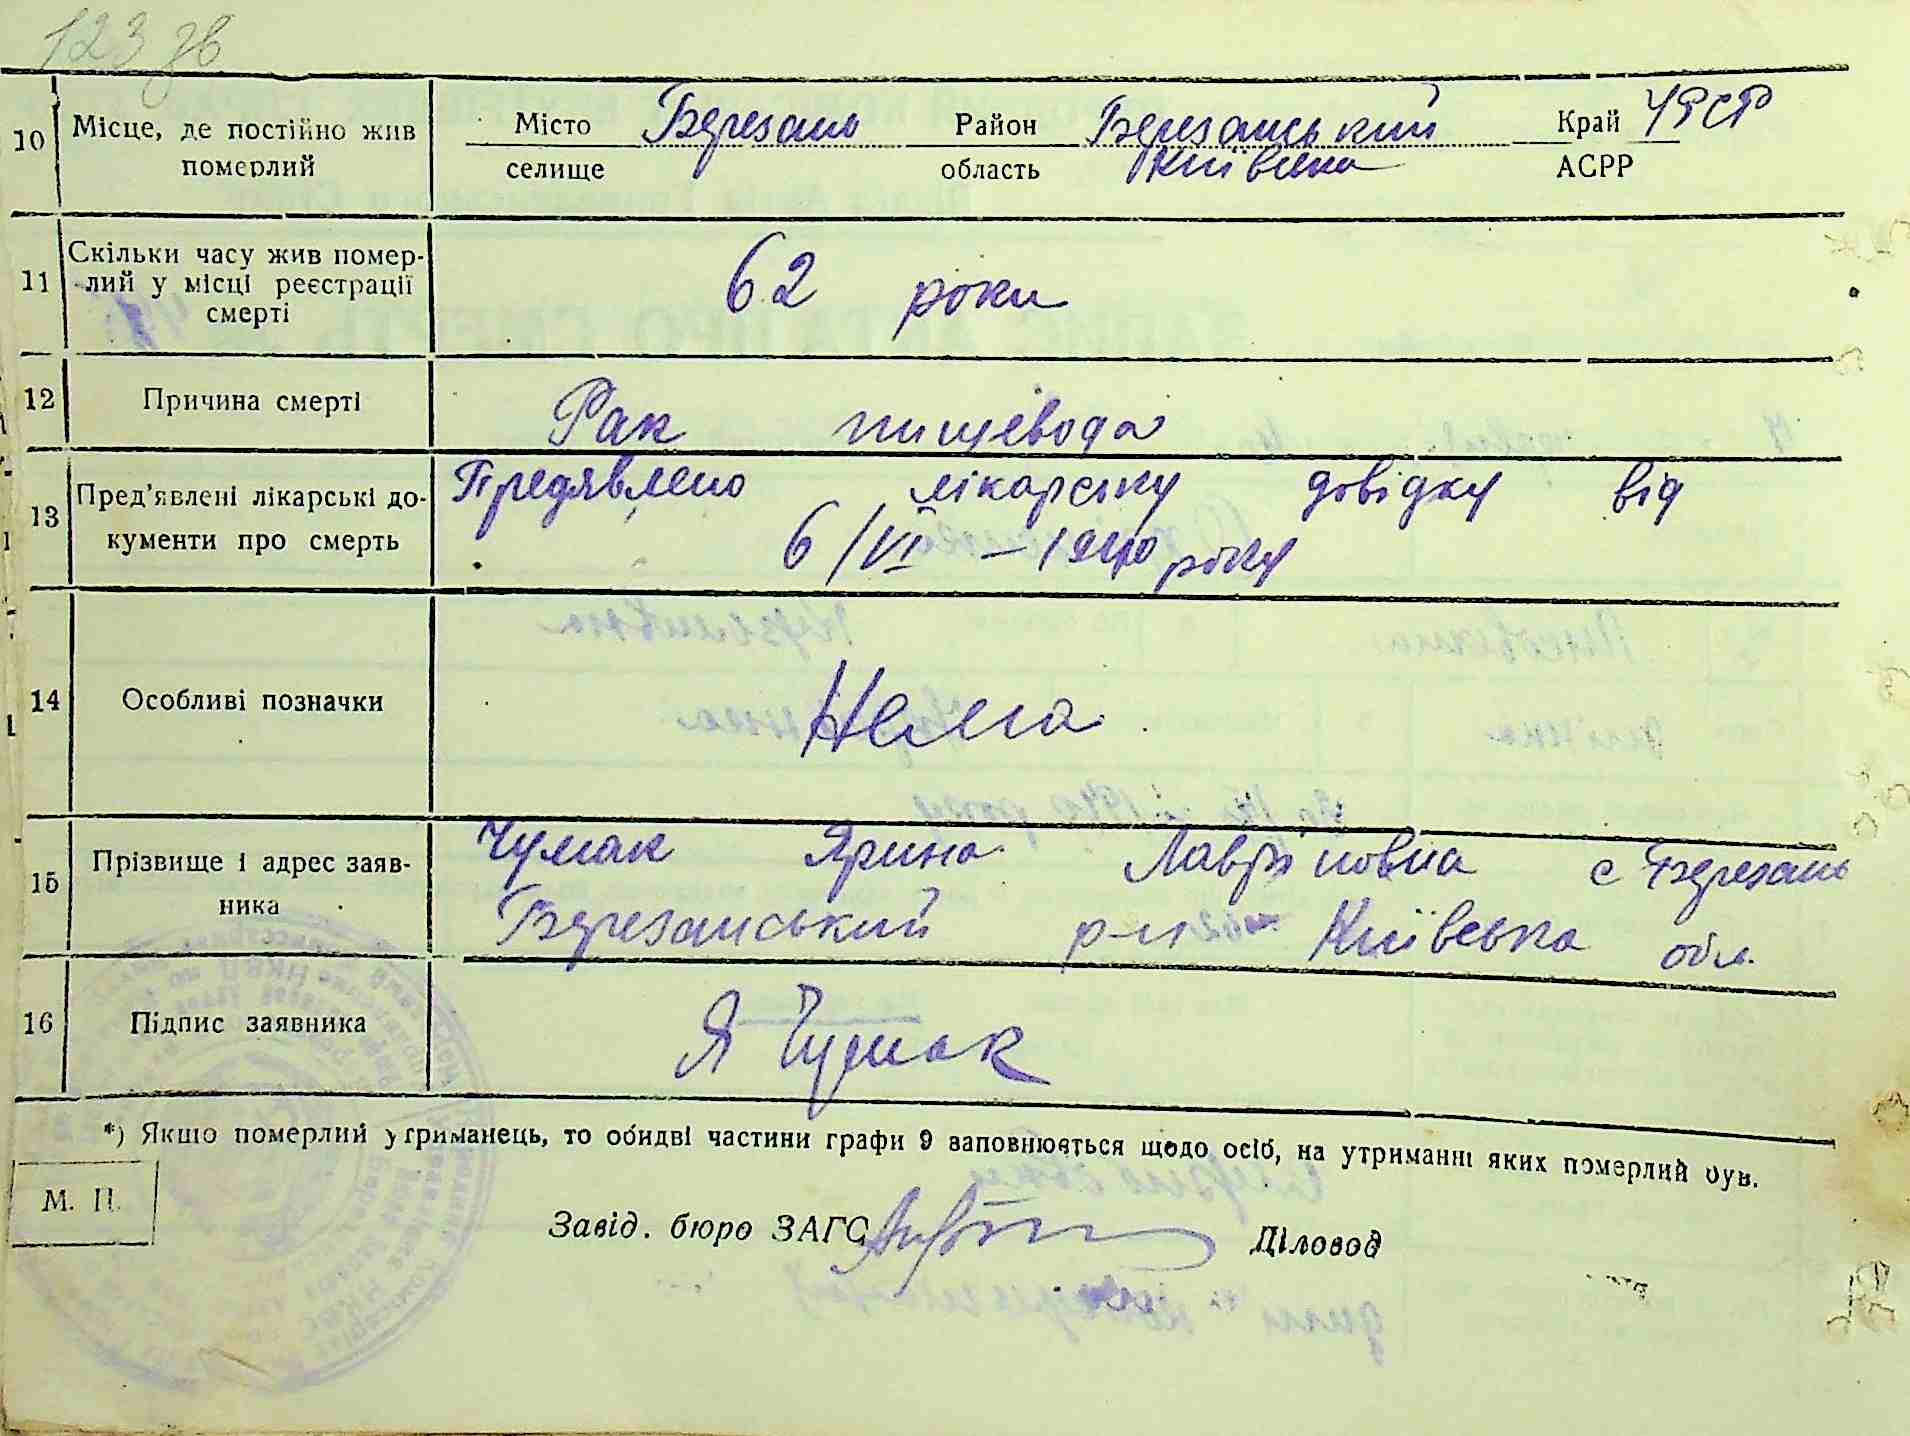 123 зв
10 Місце, де постійно жив померлий
Місто Березань Район Березанський Край УРСР
селище область Київська АСРР
11 Скільки часу жив помер-
лий у місці реєстрації
смерті
62 роки
12 Причина смерті Рак пищевода
13 Пред'явлені лікарські до-
кументи про смерть
Предявлено лікарську довідку від
6/VI – 1940 року
14 Особливі позначки Нема
15 Прізвище і адрес заяв-
ника
Чумак Ярина Лавріновна с Березань
Березанський р-н Київська обл.
16 Підпис заявника Я Чумак
*) Якшо померлий утриманець, то обидві частини графи 9 заповнюються щодо осіб, на утриманні яких померлий був.
М. П.
Завід. бюро ЗАГС Діловод